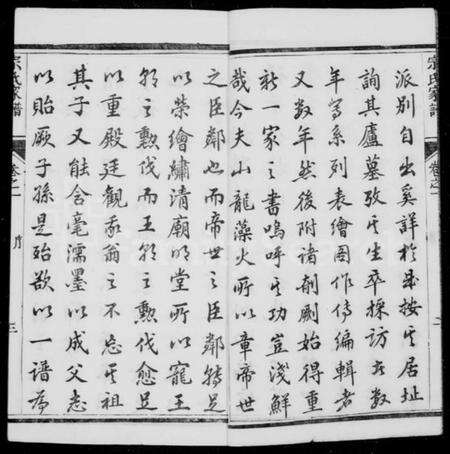 宗氏家譜
卷之一
二
派別自出奚詳於是按其居址
詢其廬墓攷其生卒採訪有數
年寫系列表繪圖作傳編輯者
又數年然後附諸剞劂始得重
新一家之書嗚呼其功豈淺鮮
哉今夫山龍藻火所以章帝世
之臣鄰也而帝世之臣鄰轉足
以榮繪繡清廟明堂所以寵王
朝之勲伐而王朝之勲伐愈足
以重殿廷觀承翁之不忘其祖
其子又能含毫濡墨以成父志
以貽厥子孫是殆欲以一譜為
宗氏家譜
卷之一
三